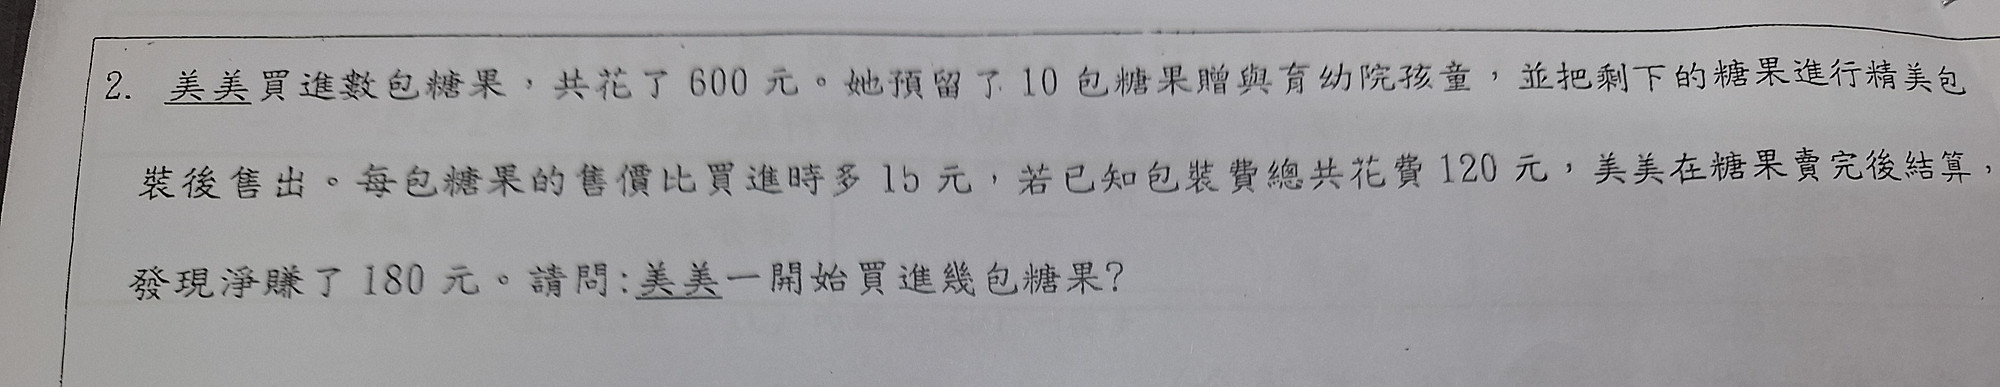 2. 美美買進數包糖果，共花了 600 元。她預留了 10 包糖果贈與育幼院孩童，並把剩下的糖果進行精美包
裝後售出。每包糖果的售價比買進時多 15 元，若已知包裝費總共花費 120 元，美美在糖果賣完後結算，
發現淨賺了 180 元。請問:美美一開始買進幾包糖果?